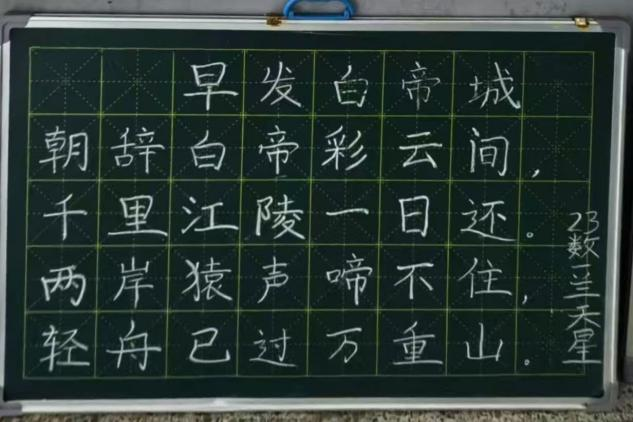 早发白帝城
朝辞白帝彩云间，
千里江陵一日还。
两岸猿声啼不住，
轻舟已过万重山。
23数一兰天星